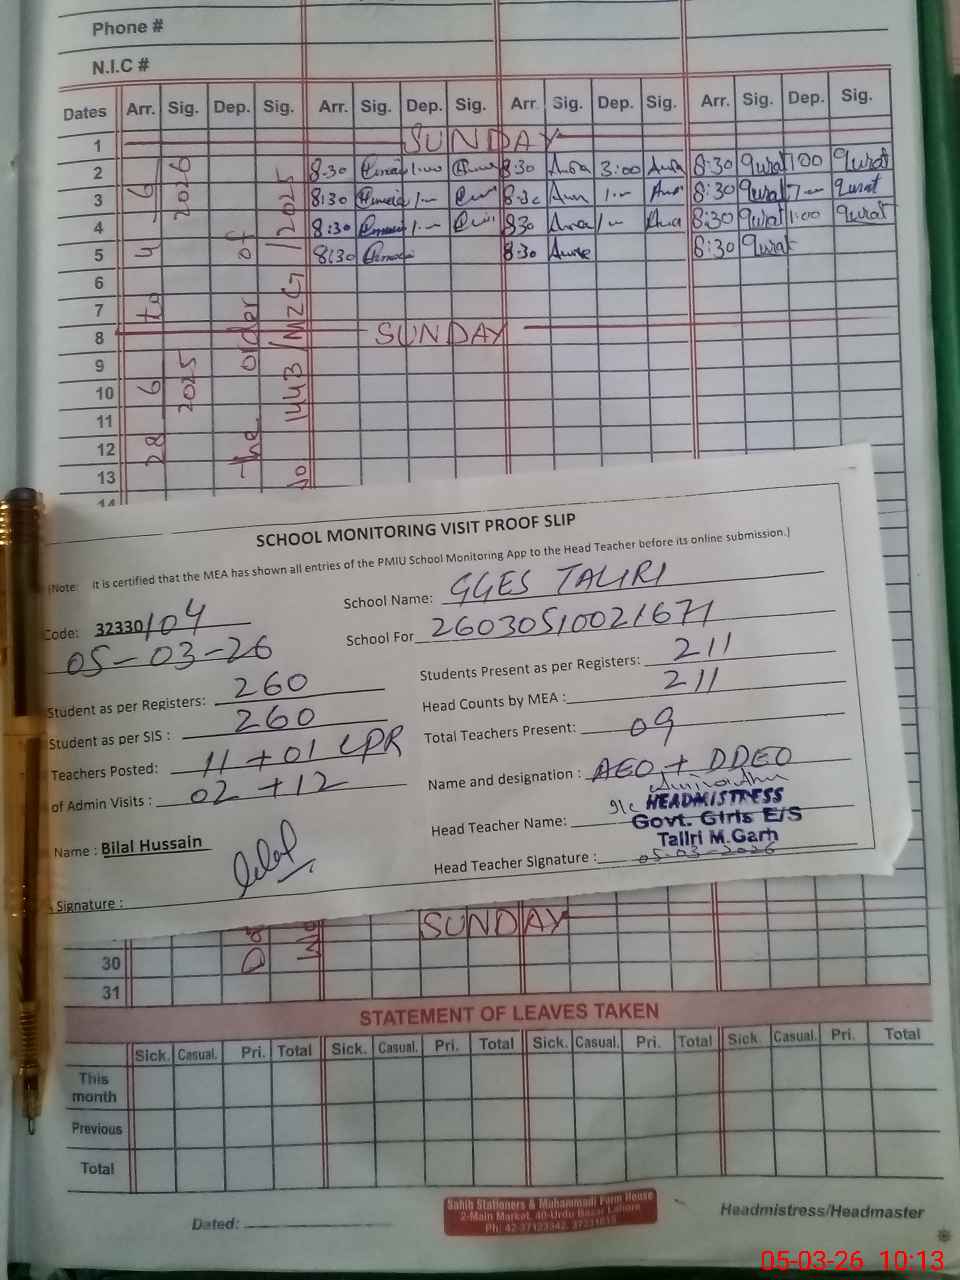 Phone #
N.I.C #
Dates Arr. Sig. Dep. Sig. Arr. Sig. Dep. Sig. Arr. Sig. Dep. Sig. Arr. Sig. Dep. Sig.
1 SUNDAY
2 8:30 1:00 8:30 Aura 3:00 Aura 8:30 Qurat 1:00 Qurat
3 8:30 1:— 8:30 1:— 8:30 Qurat Qurat
4 8:30 1:— 8:30 Aura 1:— Aura 8:30 Qurat 1:00 Qurat
5 8:30 8:30 8:30 Qurat
6
7
8 SUNDAY
9
10
11
12
13
14
28 6 2025 to 4 - 6 - 2026
the order of
No 1443/MZG /2025
SCHOOL MONITORING VISIT PROOF SLIP
(Note: It is certified that the MEA has shown all entries of the PMIU School Monitoring App to the Head Teacher before its online submission.)
Code: 32330/04 School Name: GGES TALIRI
05-03-26 School For 26030510021671
Student as per Registers: 260 Students Present as per Registers: 211
Student as per SIS : 260 Head Counts by MEA : 211
Teachers Posted: 11 + 01 LPR Total Teachers Present: 09
of Admin Visits : 02 + 12 Name and designation : AEO + DDEO
Name : Bilal Hussain Head Teacher Name: I/c HEADMISTRESS
Govt. Girls E/S
Taliri M.Garh
Signature : Head Teacher Signature : 05-03-2026
SUNDAY
30
31
STATEMENT OF LEAVES TAKEN
Sick. Casual. Pri. Total Sick. Casual. Pri. Total Sick. Casual. Pri. Total Sick. Casual. Pri. Total
This month
Previous
Total
Dated:
Sahib Stationers & Muhammadi Form House
2-Main Market, 40-Urdu Bazar Lahore
Ph: 42-37123342, 37231816
Headmistress/Headmaster
05-03-26 10:13